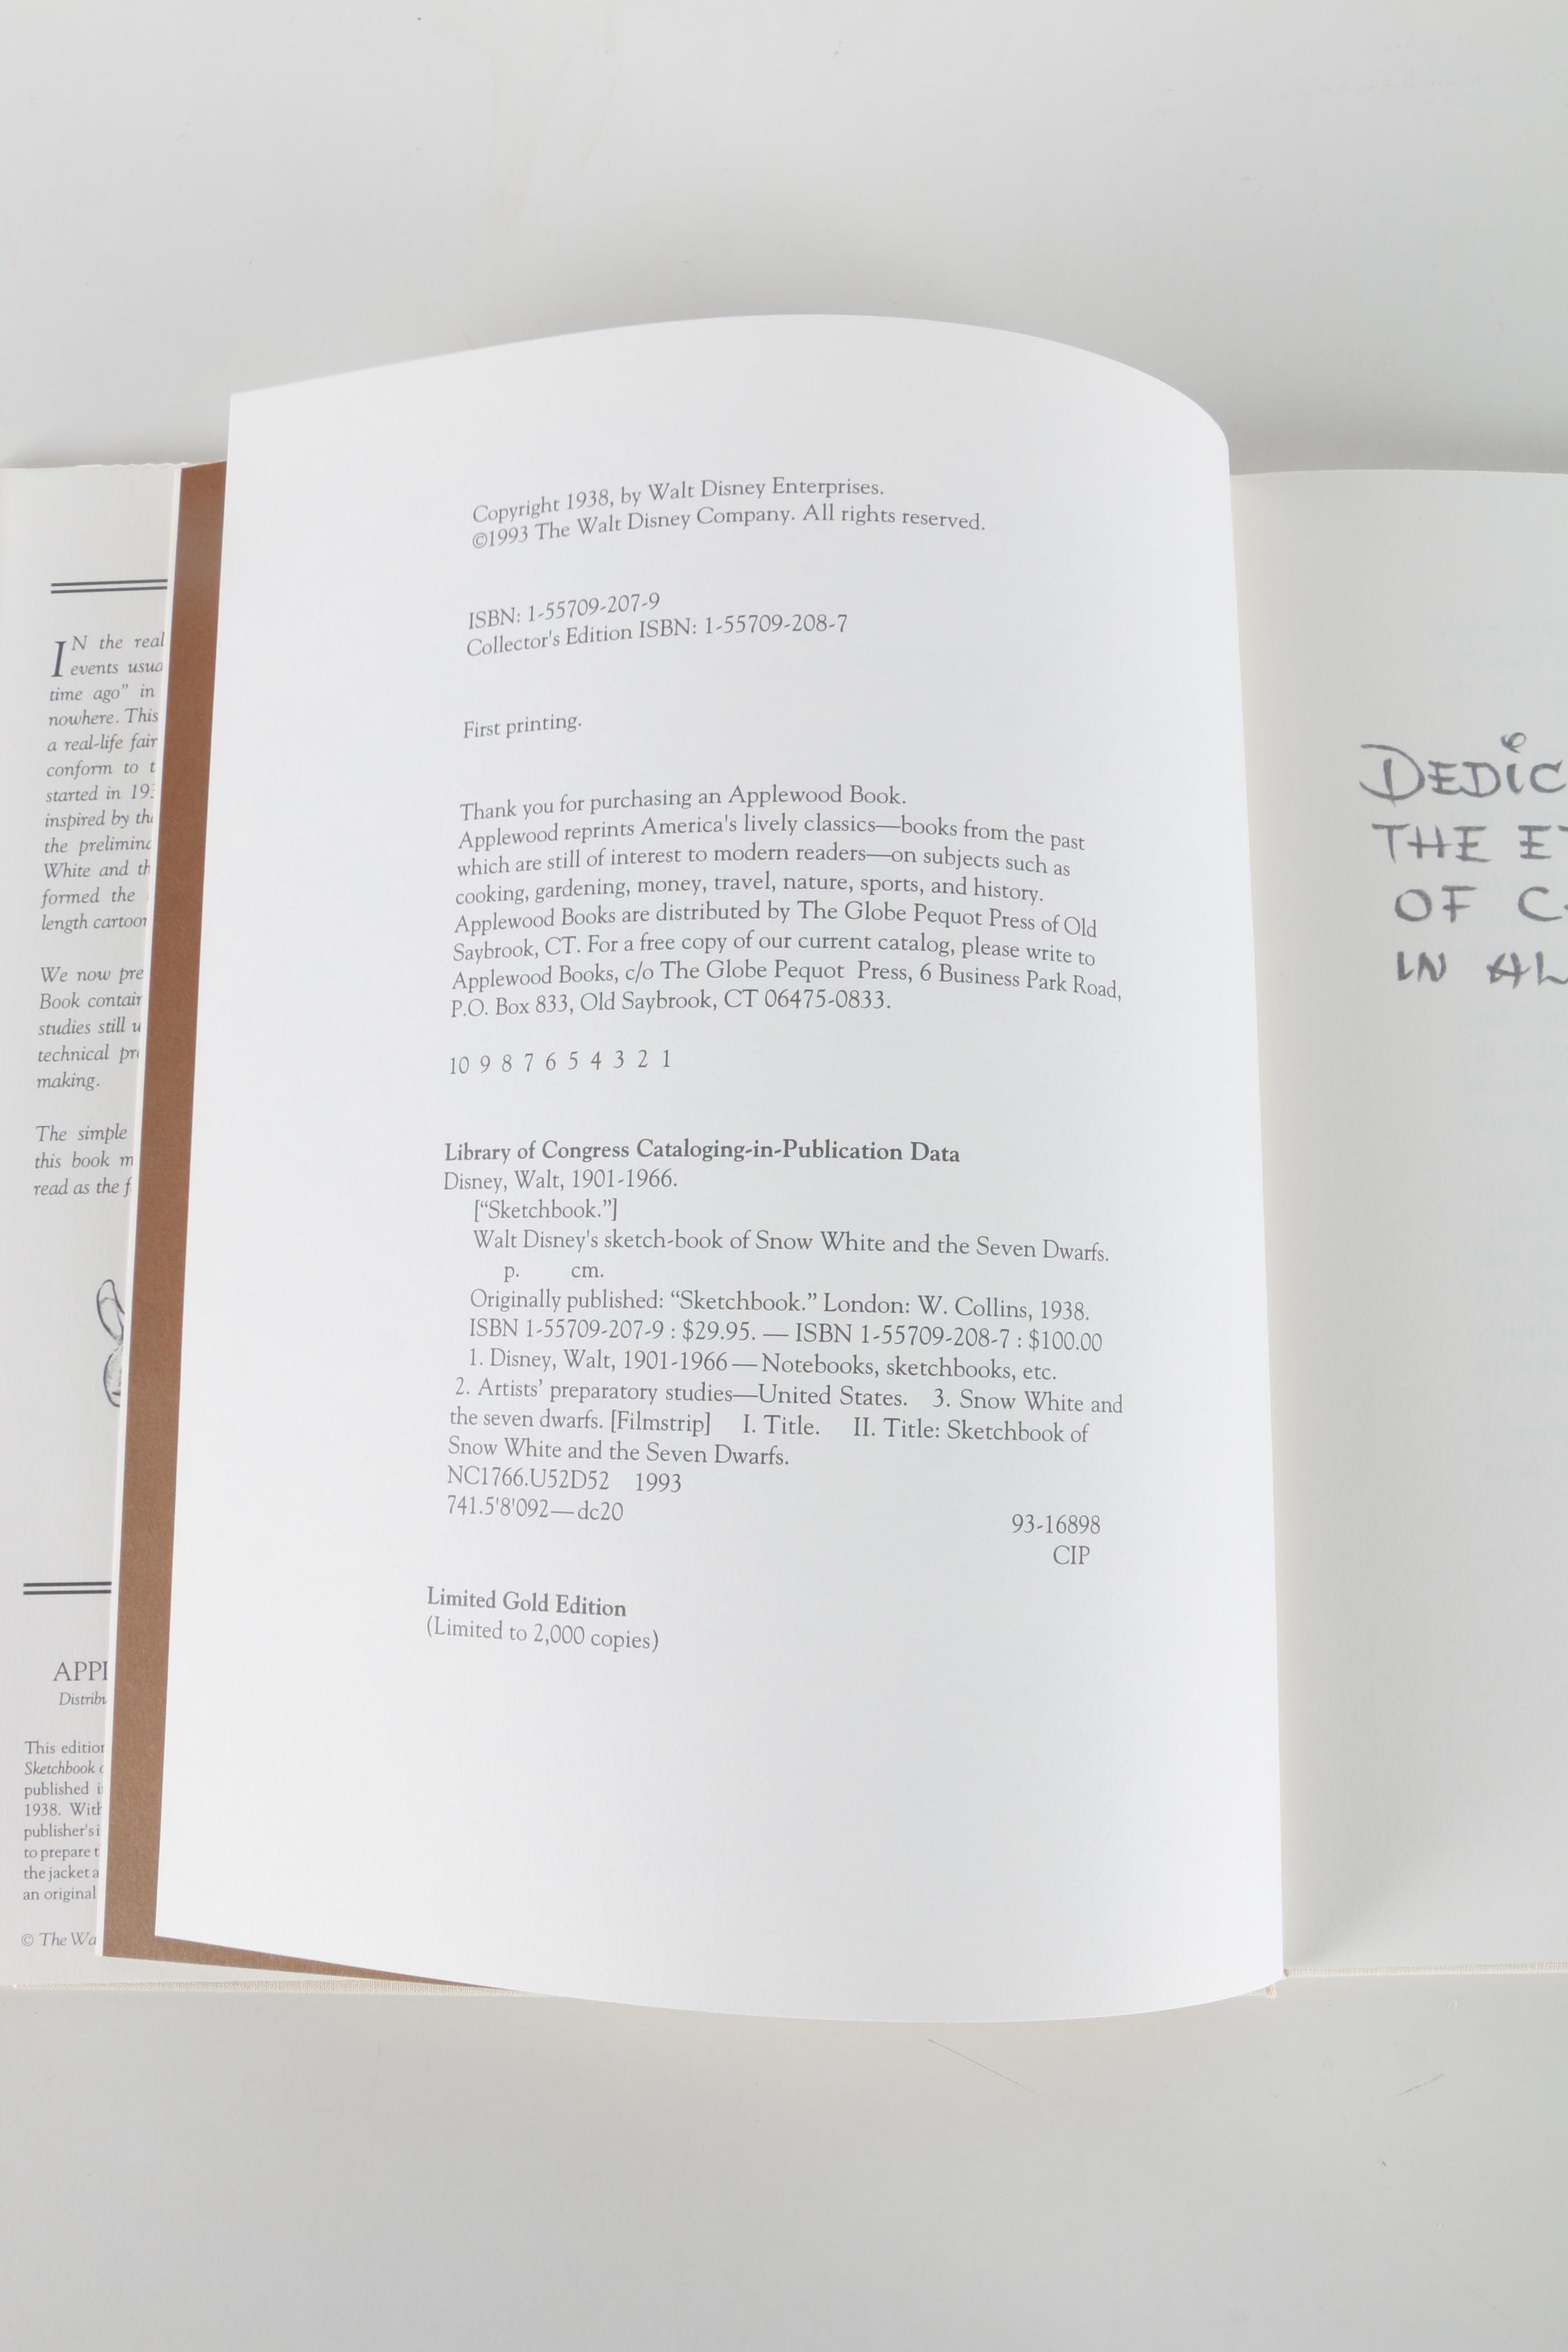 IN the real
events usua
time ago” in
nowhere. This
a real-life fair
conform to t
started in 193
inspired by the
the prelimina
White and th
formed the
length cartoon
We now pre
Book contain
studies still u
technical pro
making.
The simple
this book m
read as the f
APPL
Distribu
This edition
Sketchbook o
published i
1938. With
publisher's i
to prepare t
the jacket a
an original
© The Wa
Copyright 1938, by Walt Disney Enterprises.
©1993 The Walt Disney Company. All rights reserved.
ISBN: 1-55709-207-9
Collector's Edition ISBN: 1-55709-208-7
First printing.
Thank you for purchasing an Applewood Book.
Applewood reprints America's lively classics—books from the past
which are still of interest to modern readers—on subjects such as
cooking, gardening, money, travel, nature, sports, and history.
Applewood Books are distributed by The Globe Pequot Press of Old
Saybrook, CT. For a free copy of our current catalog, please write to
Applewood Books, c/o The Globe Pequot Press, 6 Business Park Road,
P.O. Box 833, Old Saybrook, CT 06475-0833.
10 9 8 7 6 5 4 3 2 1
Library of Congress Cataloging-in-Publication Data
Disney, Walt, 1901-1966.
[“Sketchbook.”]
Walt Disney's sketch-book of Snow White and the Seven Dwarfs.
p. cm.
Originally published: “Sketchbook.” London: W. Collins, 1938.
ISBN 1-55709-207-9 : $29.95. — ISBN 1-55709-208-7 : $100.00
1. Disney, Walt, 1901-1966—Notebooks, sketchbooks, etc.
2. Artists’ preparatory studies—United States. 3. Snow White and
the seven dwarfs. [Filmstrip] I. Title. II. Title: Sketchbook of
Snow White and the Seven Dwarfs.
NC1766.U52D52 1993
741.5'8'092—dc20
93-16898
CIP
Limited Gold Edition
(Limited to 2,000 copies)
DEDIC
THE E
OF C
IN AL